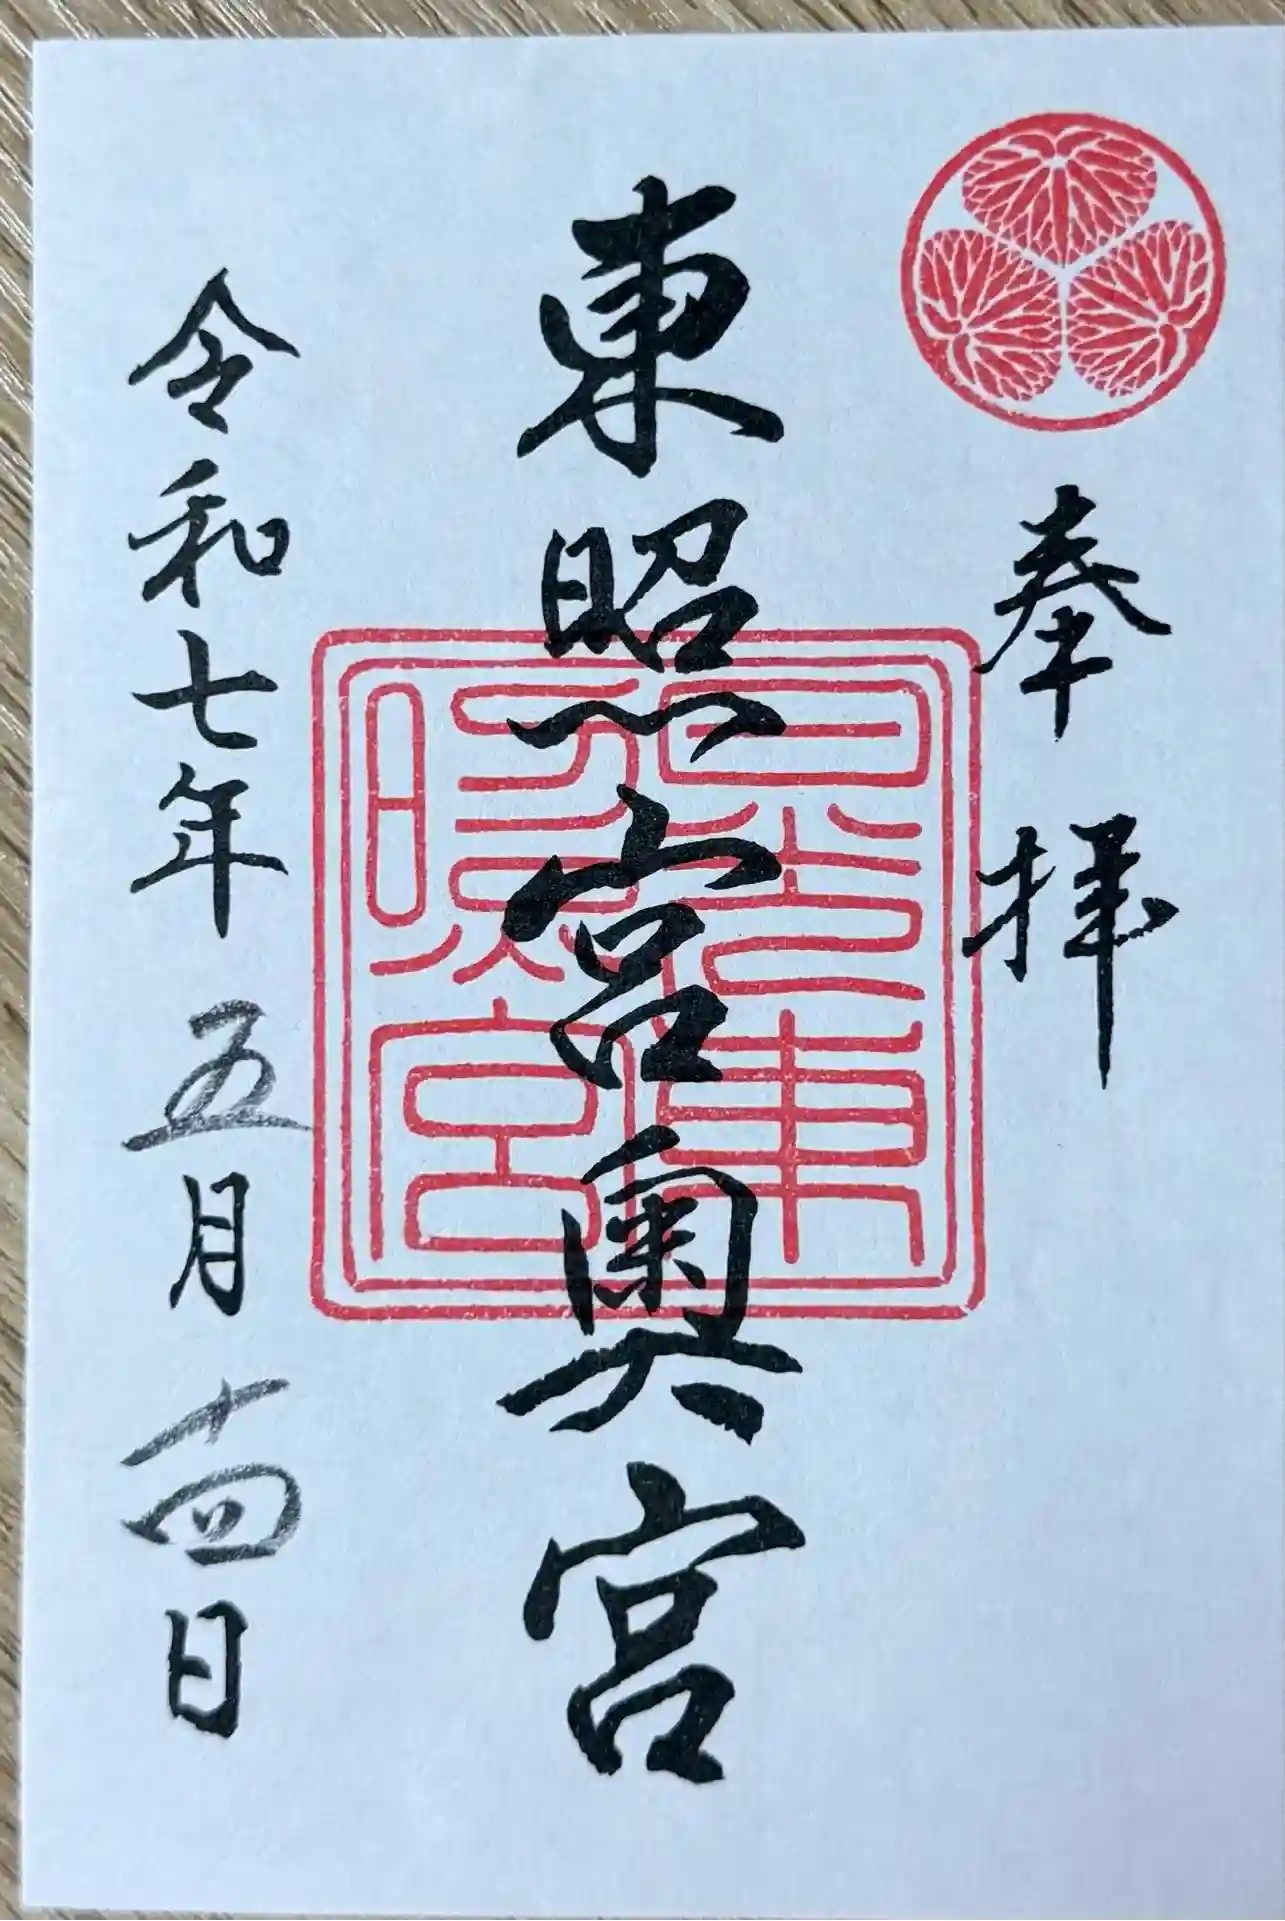 奉拝
東照宮奥宮
日光東
照宮
令和七年五月十四日